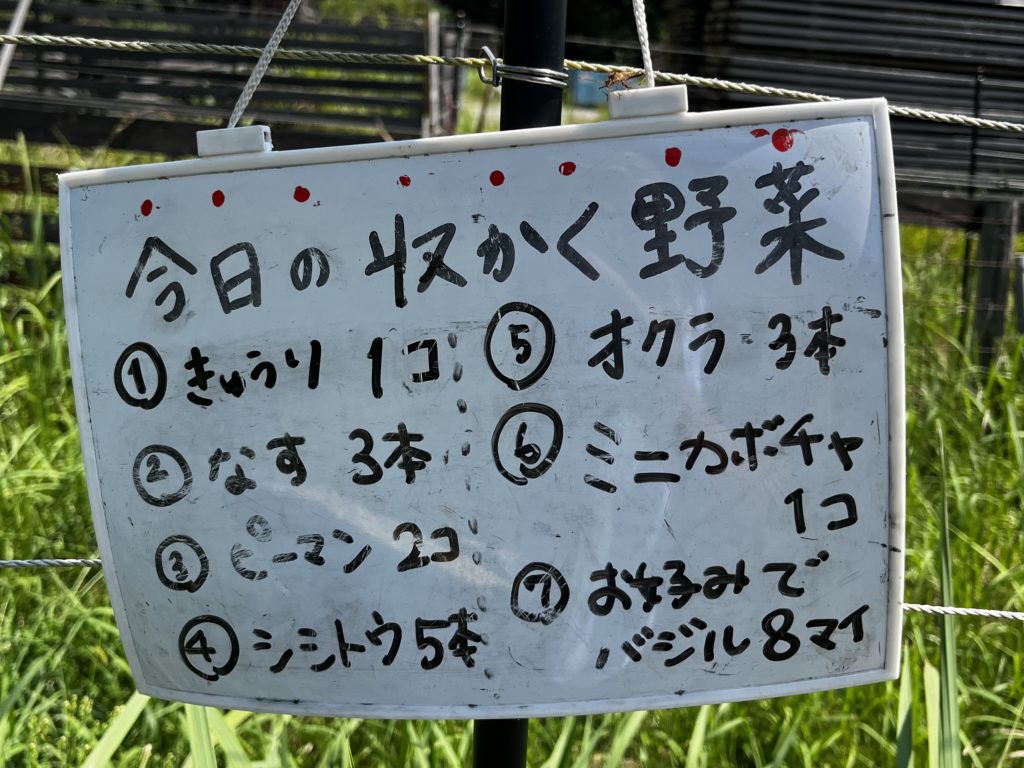 今日の収かく野菜
① きゅうり 1コ
② なす 3本
③ ピーマン 2コ
④ シシトウ 5本
⑤ オクラ 3本
⑥ ミニカボチャ
1コ
⑦ お好みで
バジル 8マイ